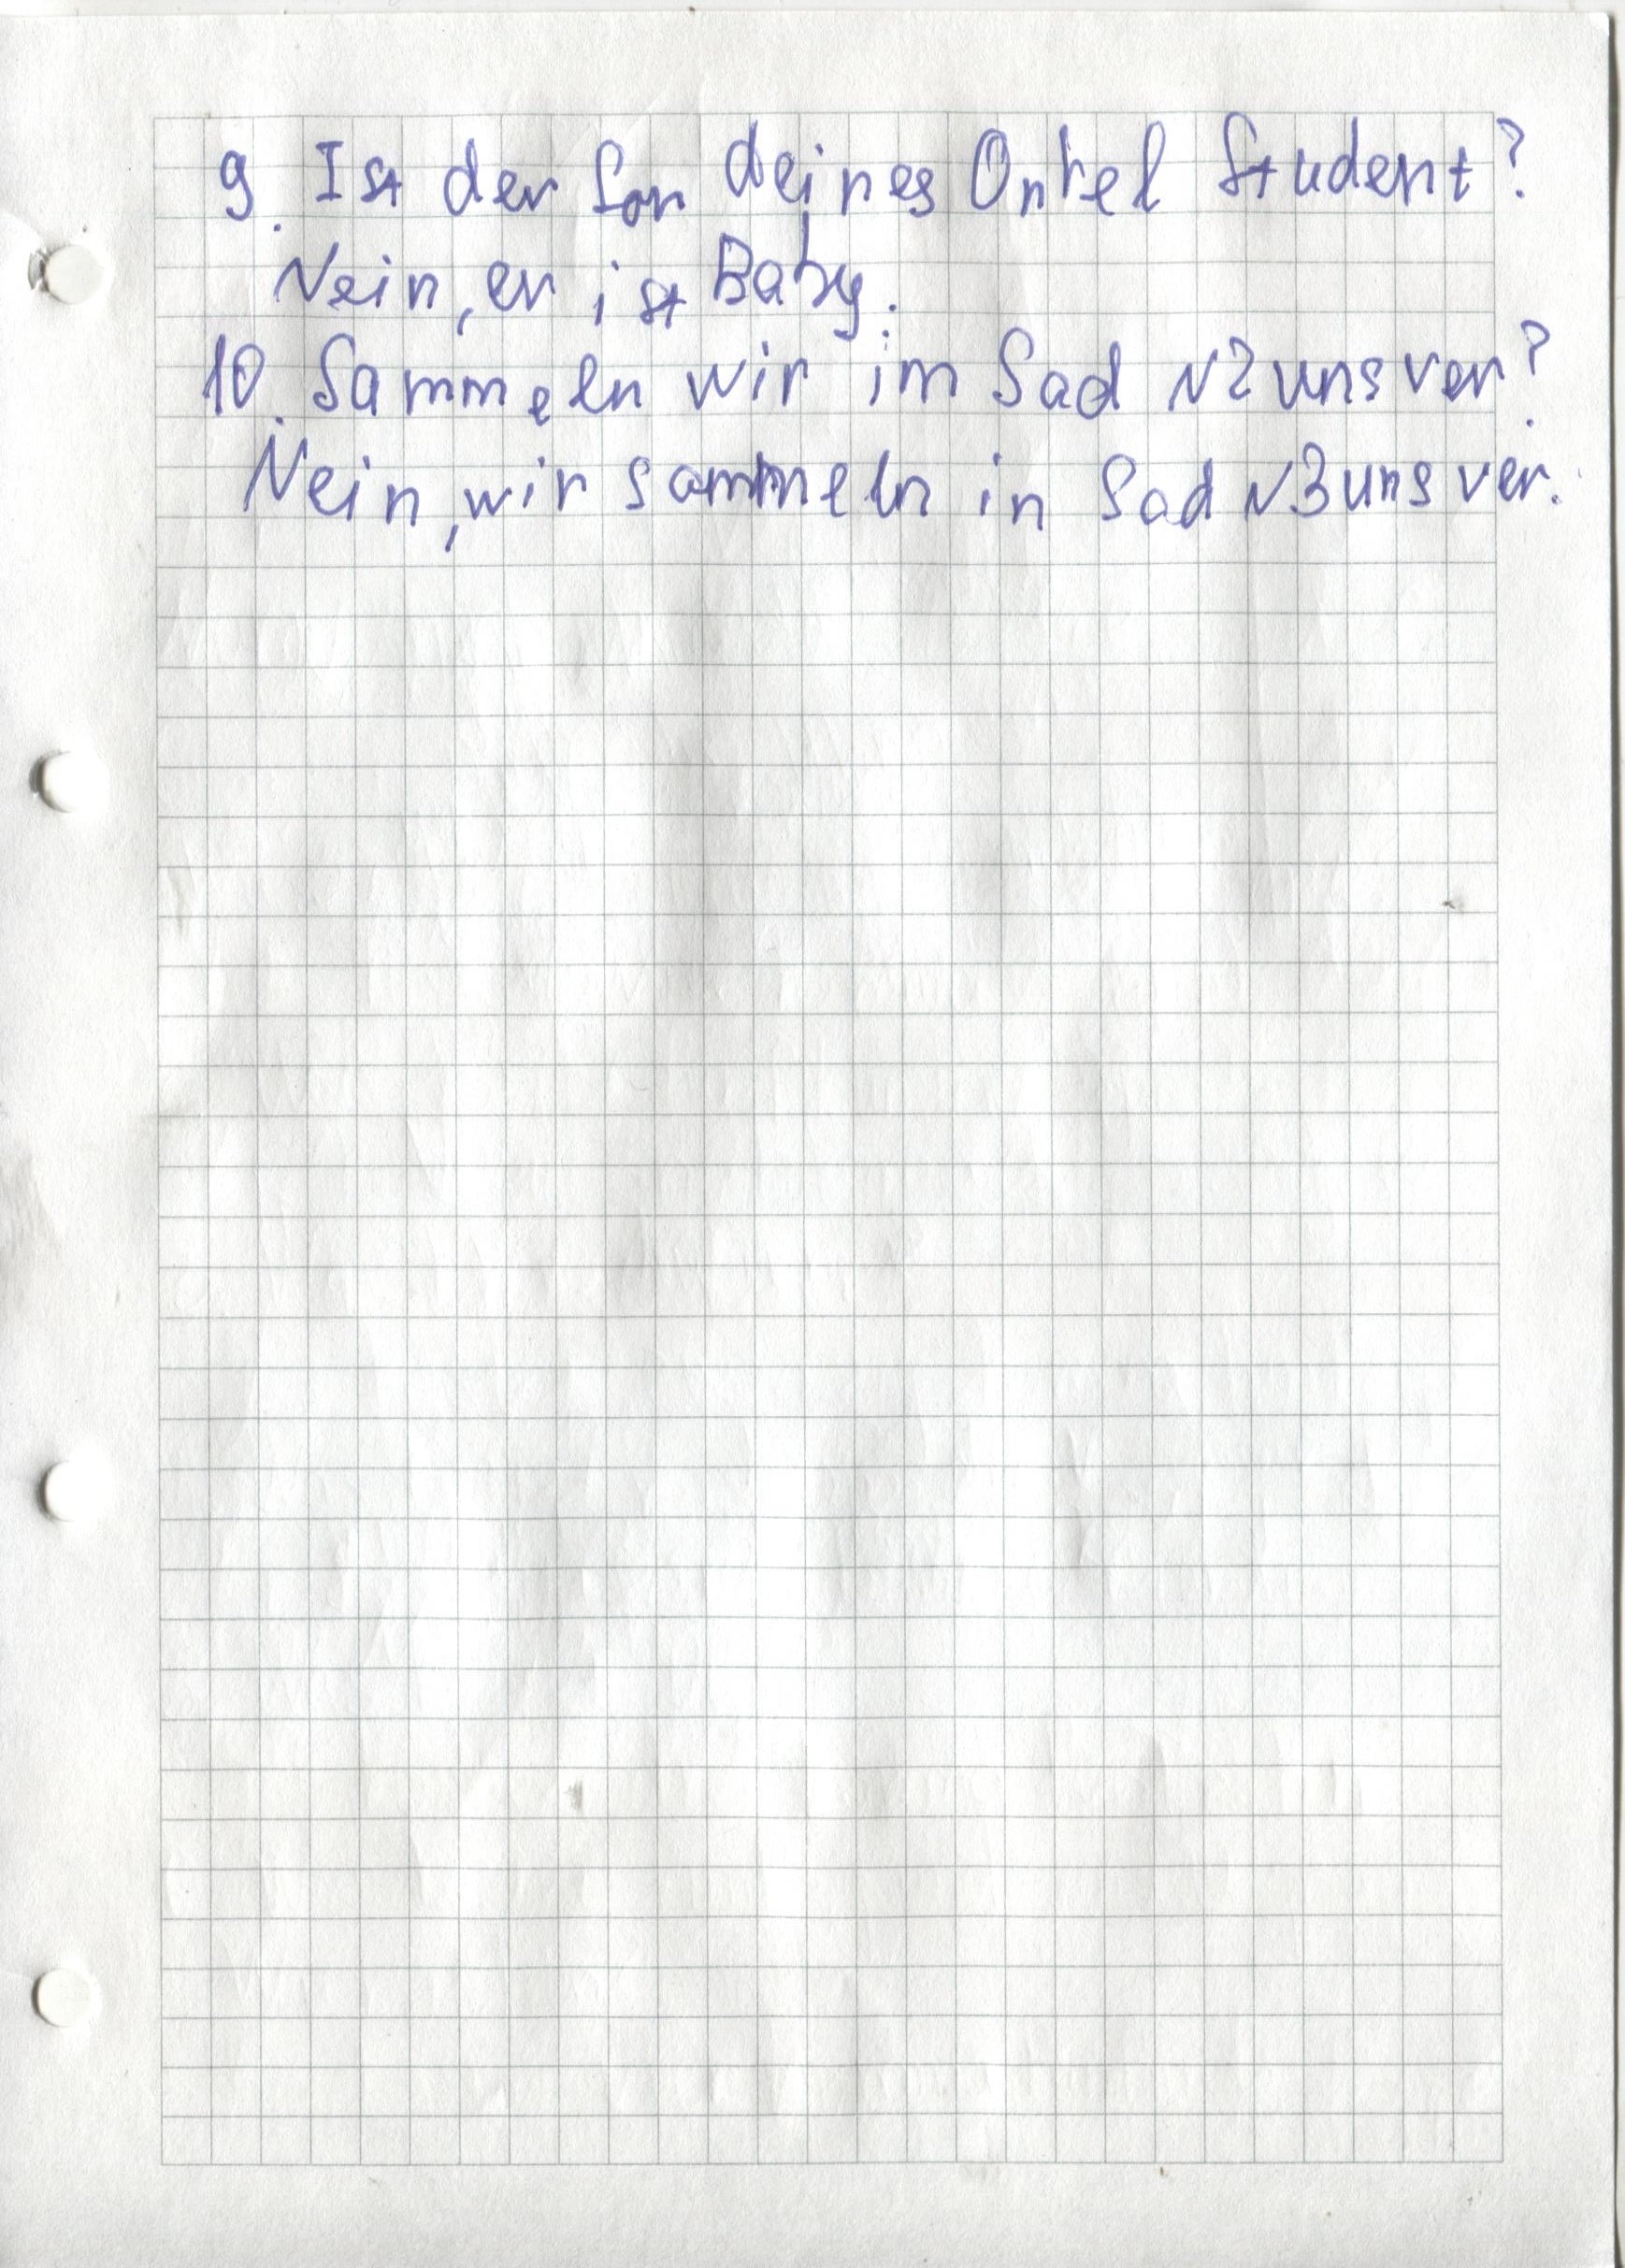 9. Ist der Son deines Onkel Student?
Nein, er ist Baby.
10. Sammeln wir im Sad N2 uns ver?
Nein, wir sammeln in Sad N3 uns ver.